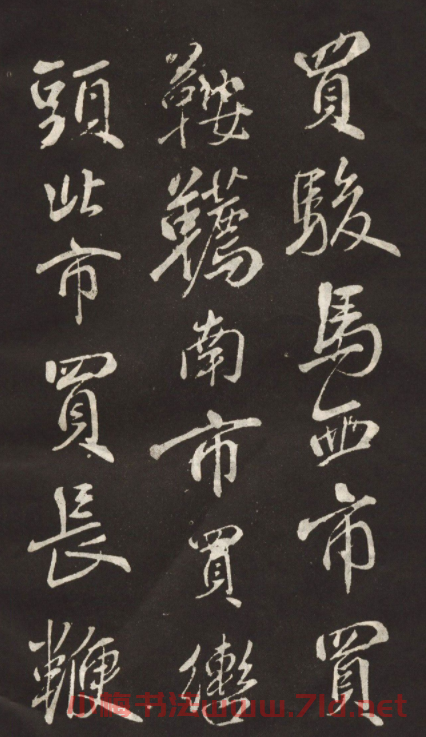 買駿馬西市買
鞍韉南市買轡
頭北市買長鞭
小梅书法www.7ld.net